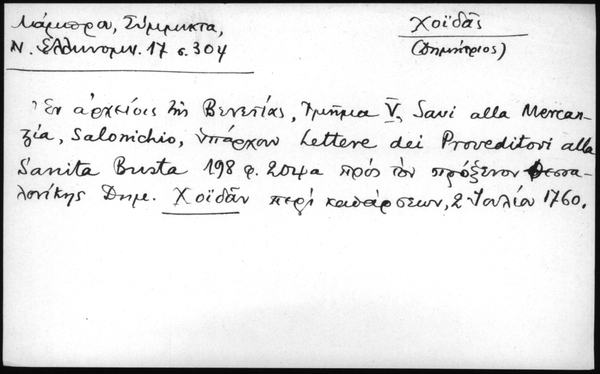 Λάμπρου, Σύμμικτα,
Ν. Ἑλληνομν. 17 σ. 304
Χοϊδᾶς
(Δημήτριος)
Ἐν ἀρχείοις τῆς Βενετίας, Τμῆμα V, Savi alla Mercan-
zia, Salonichio, ὑπάρχουν Lettere dei Proveditori alla
Sanita Busta 198 φ. 204α πρὸς τὸν πρόξενον Θεσσα-
λονίκης Δημ. Χοϊδᾶν περὶ καθάρσεων, 2 Ἰουλίου 1760.